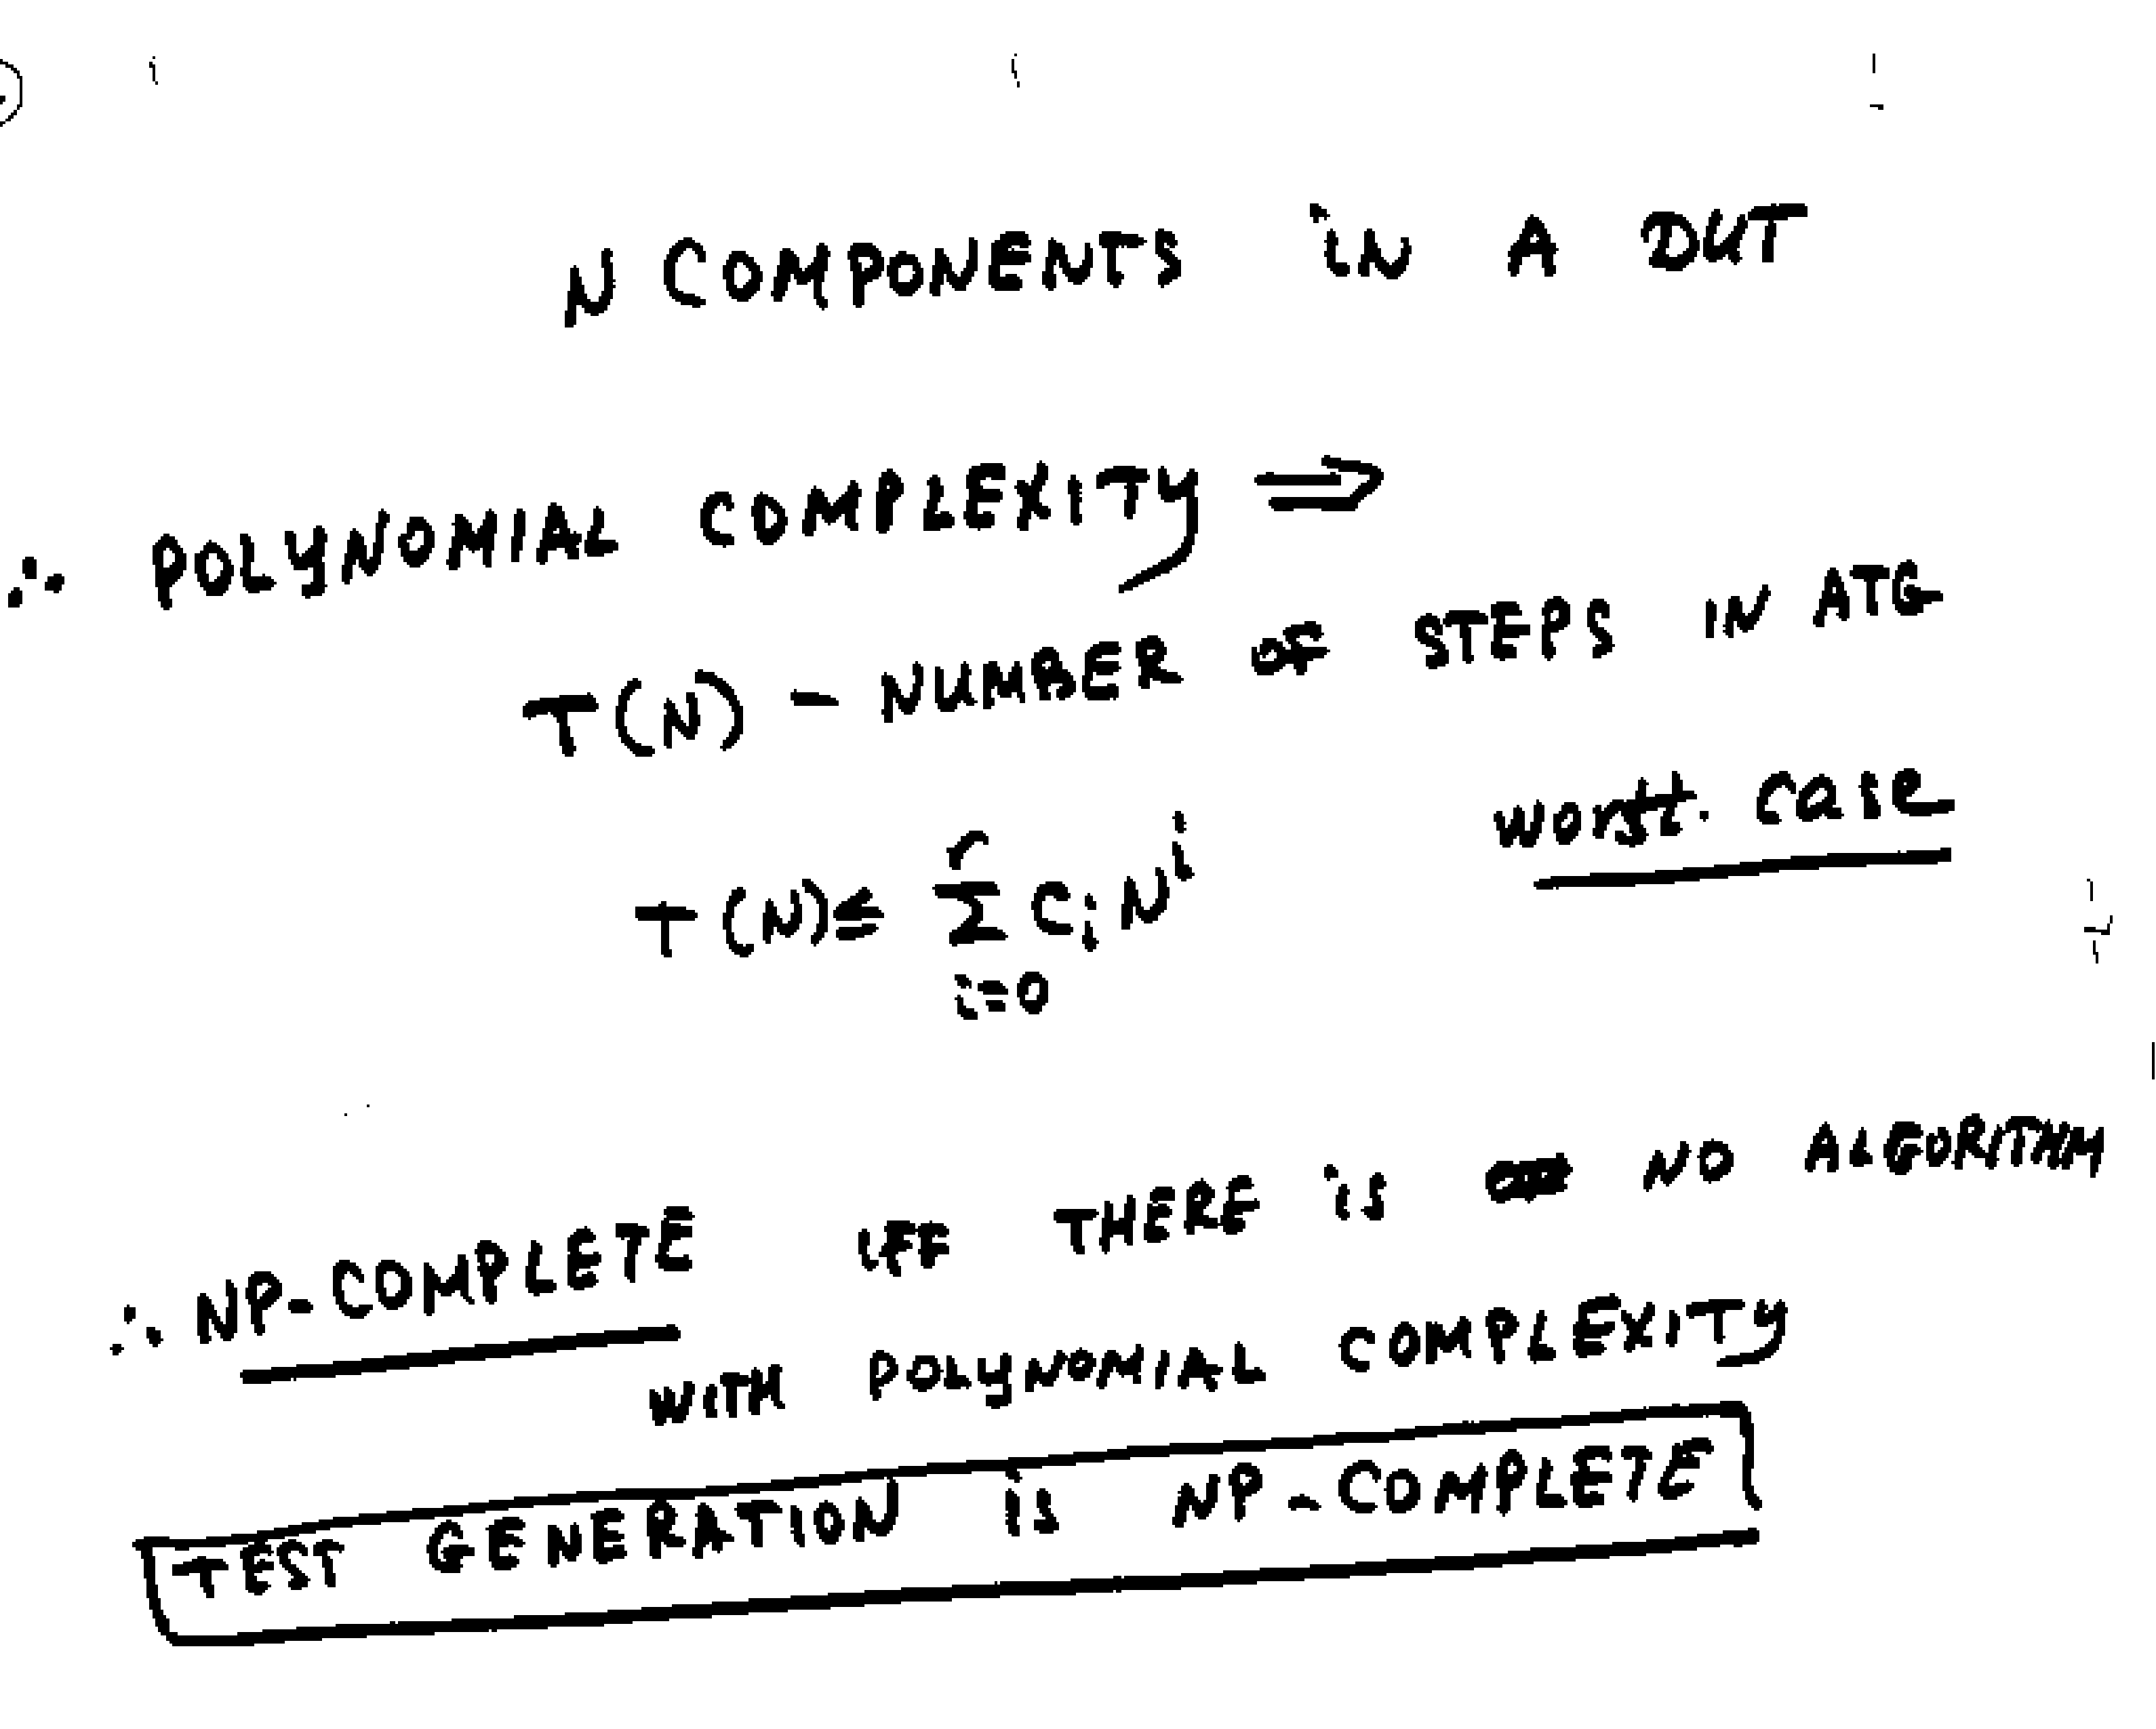 N COMPONENTS IN A DUT
∴ POLYNOMIAL COMPLEXITY ⇒
T(N) - NUMBER OF STEPS IN ATG
worst. case
T(N) ≤ r∑i=0 Ci N^i
∴ NP-COMPLETE IFF THERE IS NO ALGORITHM
WITH POLYNOMIAL COMPLEXITY
TEST GENERATION IS NP-COMPLETE